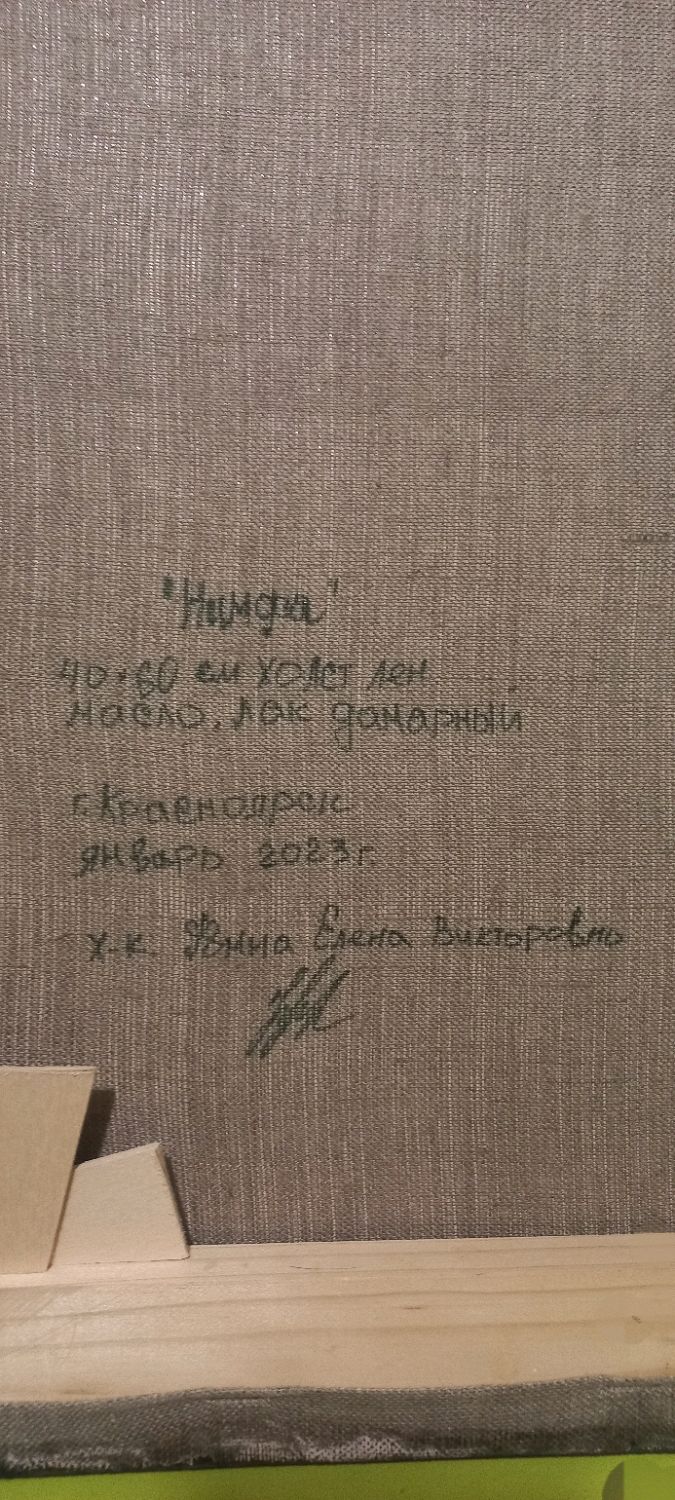 "Нимфа"
40×60 см холст лен
масло, лак дамарный
г. Красноярск
январь 2023 г.
х.к. Елена Викторовна